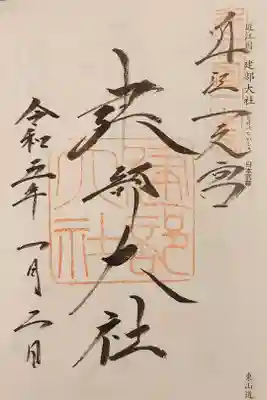 近江国 建部大社
日本武尊
東山道
近江一之宮
建部大社
建部大社
令和五年 一月二日